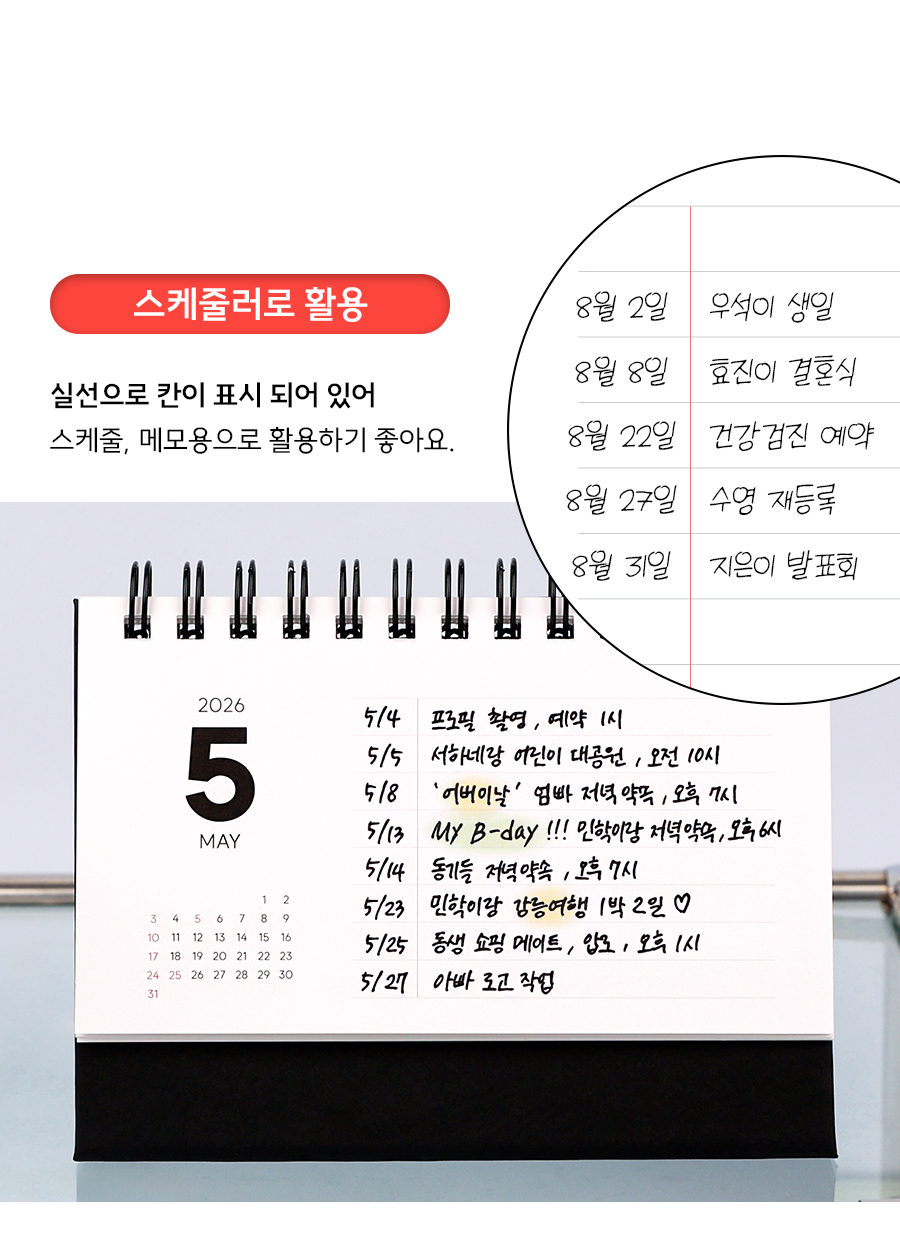 스케줄러로 활용
실선으로 칸이 표시 되어 있어
스케줄, 메모용으로 활용하기 좋아요.
8월 2일 우석이 생일
8월 8일 효진이 결혼식
8월 22일 건강검진 예약
8월 27일 수영 재등록
8월 31일 지은이 발표회
2026
5
MAY
1 2
3 4 5 6 7 8 9
10 11 12 13 14 15 16
17 18 19 20 21 22 23
24 25 26 27 28 29 30
31
5/4 프로필 촬영, 예약 1시
5/5 서하네랑 어린이 대공원, 오전 10시
5/8 '어버이날' 엄빠 저녁약속, 오후 7시
5/13 My B-day !!! 민학이랑 저녁약속, 오후 6시
5/14 동기들 저녁약속, 오후 7시
5/23 민학이랑 강릉여행 1박 2일 ♡
5/25 동생 쇼핑 데이트, 압로, 오후 1시
5/27 아빠 로고 작업